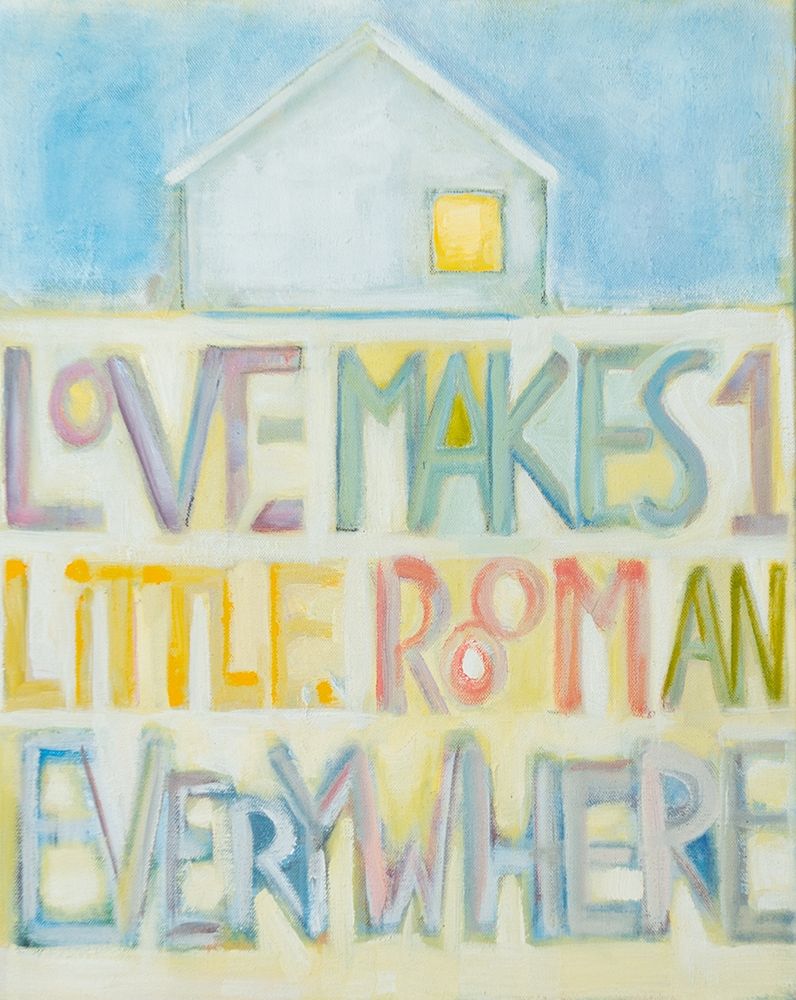 LOVE MAKES 1
LiTTLE ROOM AN
EVERYWHERE